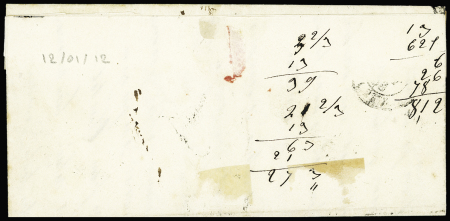 12/01/12.
2 2/3
13
39
21 2/3
13
63
21
27 3
13
621
6
26
78
812